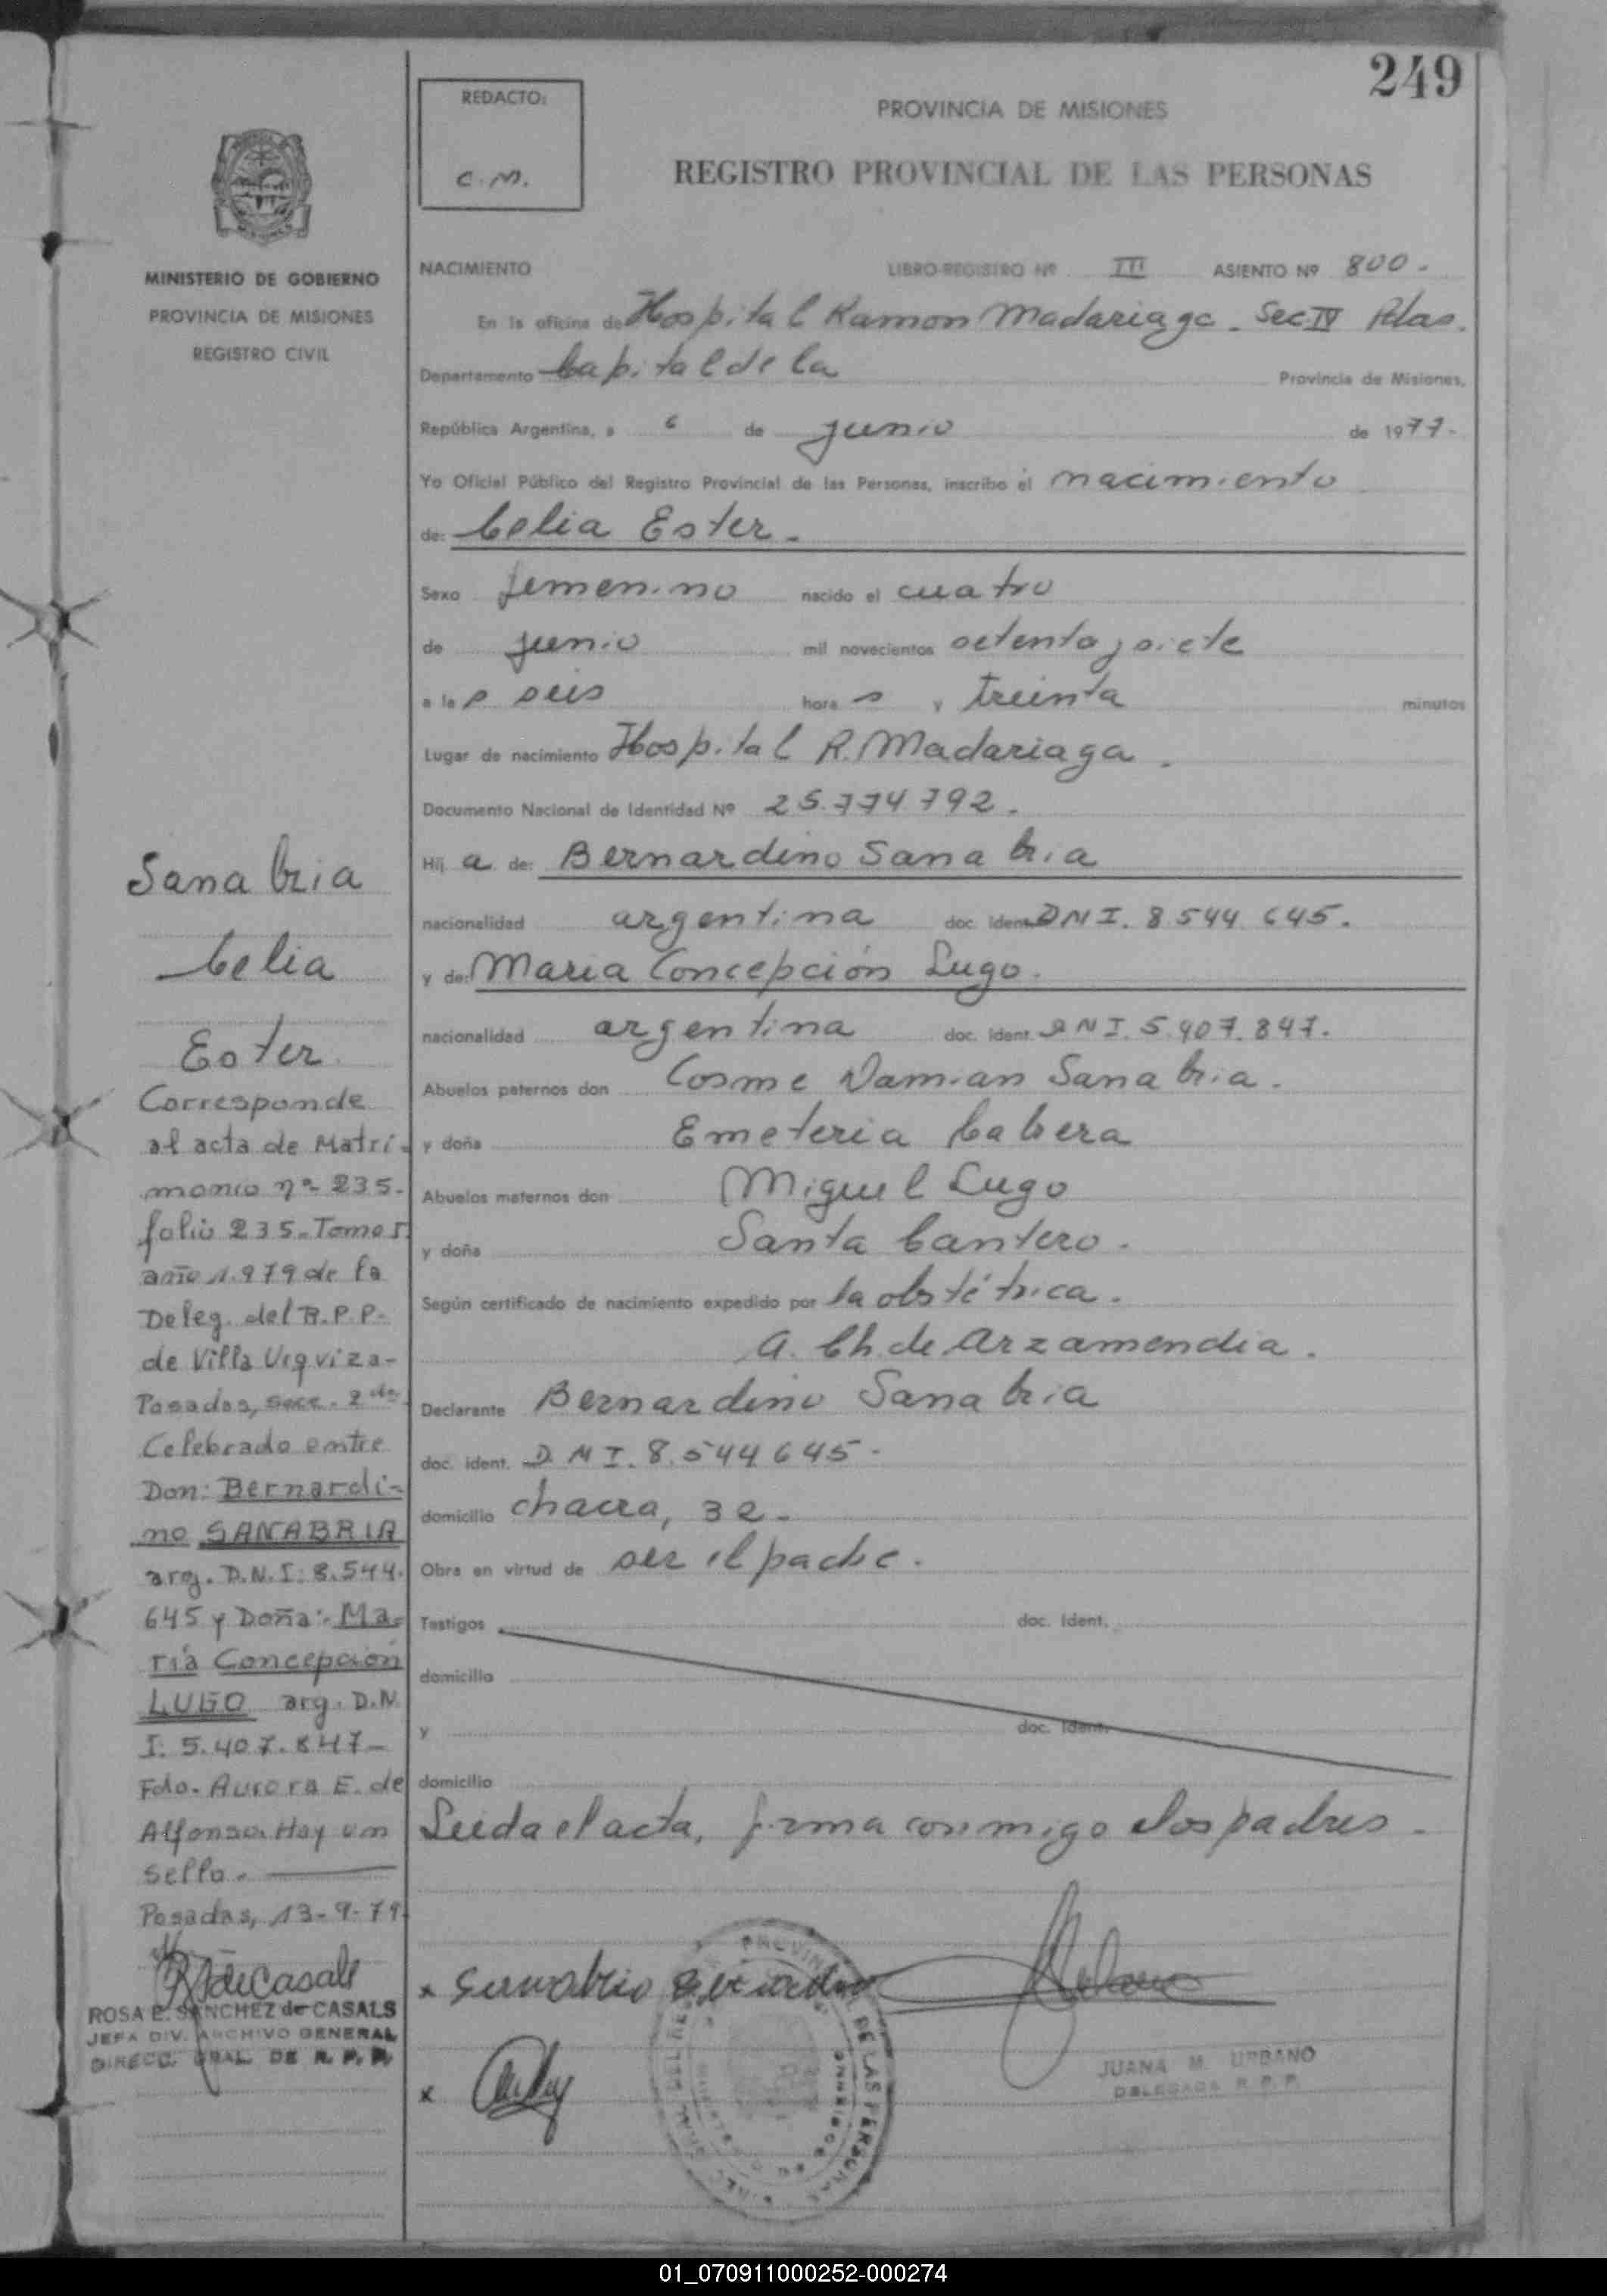 249
REDACTO:
C.M.
PROVINCIA DE MISIONES
REGISTRO PROVINCIAL DE LAS PERSONAS
MINISTERIO DE GOBIERNO
PROVINCIA DE MISIONES
REGISTRO CIVIL
NACIMIENTO LIBRO-REGISTRO Nº III ASIENTO Nº 800.
En la oficina de Hospital Ramon Madariaga - Sec IV Pdas.
Departamento Capital de la Provincia de Misiones,
República Argentina, a 6 de junio de 1977.
Yo Oficial Público del Registro Provincial de las Personas, inscribo el nacimiento
de: Celia Ester.
Sexo femenino nacido el cuatro
de junio mil novecientos setenta y siete
a las seis horas y treinta minutos
Lugar de nacimiento Hospital R. Madariaga.
Documento Nacional de Identidad Nº 25.774.792.
Hija de: Bernardino Sanabria
nacionalidad argentina doc. Ident. DNI. 8544.645.
y de: Maria Concepción Lugo.
nacionalidad argentina doc. Ident. DNI. 5.407.847.
Abuelos paternos don Cosme Damian Sanabria.
y doña Emeteria Cabrera
Abuelos maternos don Miguel Lugo
y doña Santa Cantero.
Según certificado de nacimiento expedido por la obstétrica.
A. Ch. de Arzamendia.
Declarante Bernardino Sanabria
doc. ident. DNI. 8.544645.
domicilio chacra, 32.
Obra en virtud de ser el padre.
Testigos doc. Ident.
domicilio
y doc. Ident.
domicilio
Leida el acta, firma conmigo los padres.
Sanabria
Celia
Ester
Corresponde
al acta de Matri-
monio nº 235.
folio 235. Tomo I
año 1.979 de la
Deleg. del R.P.P.
de Villa Urquiza-
Posadas, secc. 2da.
Celebrado entre
Don: Bernardi-
no SANABRIA
arg. D.N.I: 8.544.
645 y Doña: Ma-
ría Concepción
LUGO arg. D.N.
I. 5.407.847-
Fdo. Aurora E. de
Alfonso. Hay un
sello.
Posadas, 13-9-79
ROSA E. SANCHEZ de CASALS
JEFA DIV. ARCHIVO GENERAL
DIRECC. GRAL. DE R. P. P.
JUANA M. URBANO
DELEGADA R. P. P.
01_070911000252-000274